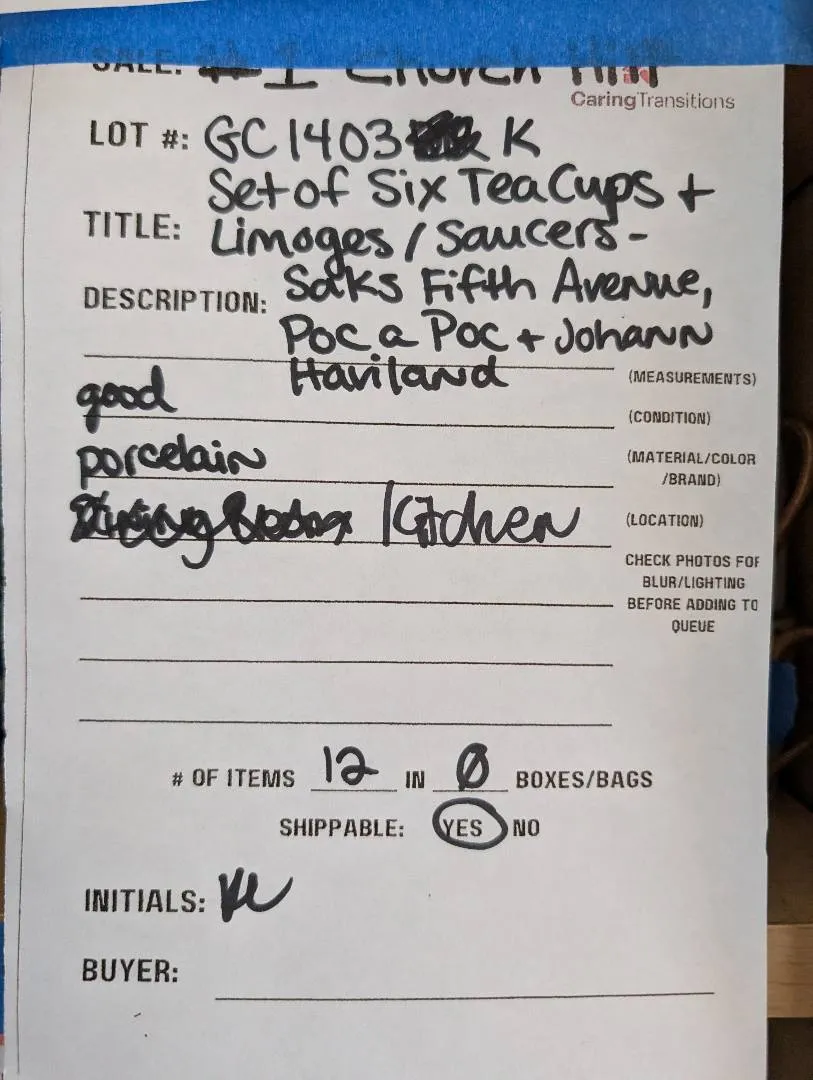 SALE: #1 Church Hill
CaringTransitions
LOT #: GC1403 K
Set of Six Tea Cups +
TITLE: Limoges / Saucers-
DESCRIPTION: Saks Fifth Avenue,
Poc a Poc + Johann
Haviland (MEASUREMENTS)
good (CONDITION)
porcelain (MATERIAL/COLOR
/BRAND)
Kitchen (LOCATION)
CHECK PHOTOS FOR
BLUR/LIGHTING
BEFORE ADDING TO
QUEUE
# OF ITEMS 12 IN 0 BOXES/BAGS
SHIPPABLE: YES NO
INITIALS:
BUYER: